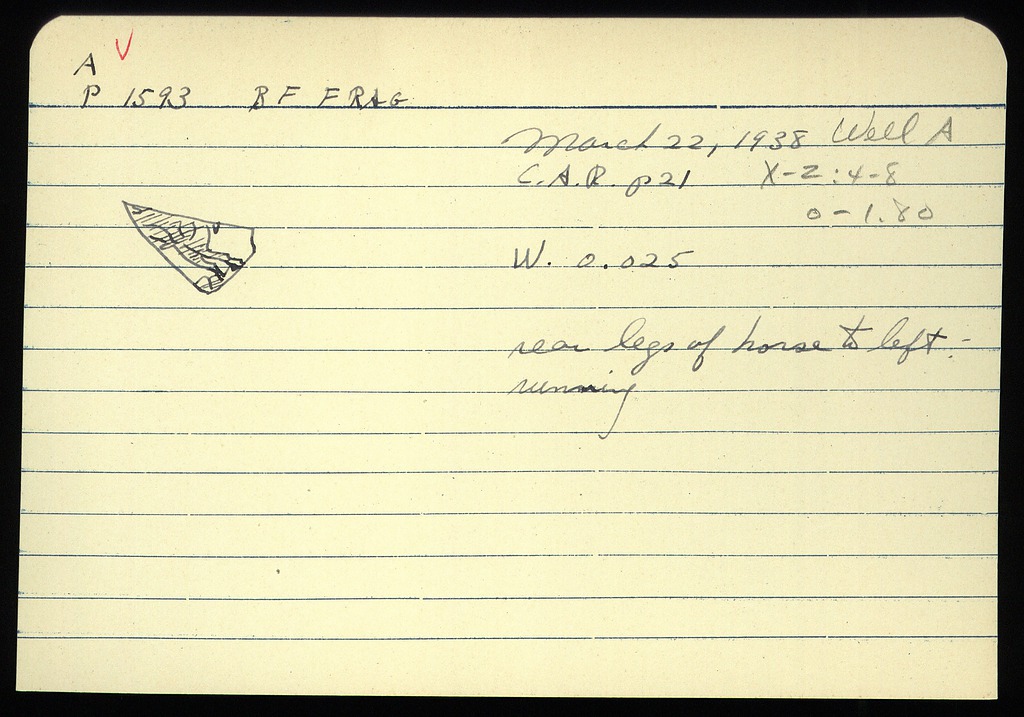 A V
P 1593 RF FRAG
March 22, 1938 Well A
C.A.R. p 21 X-2:4-8
0-1.80
W. 0.025
rear legs of horse to left -
running